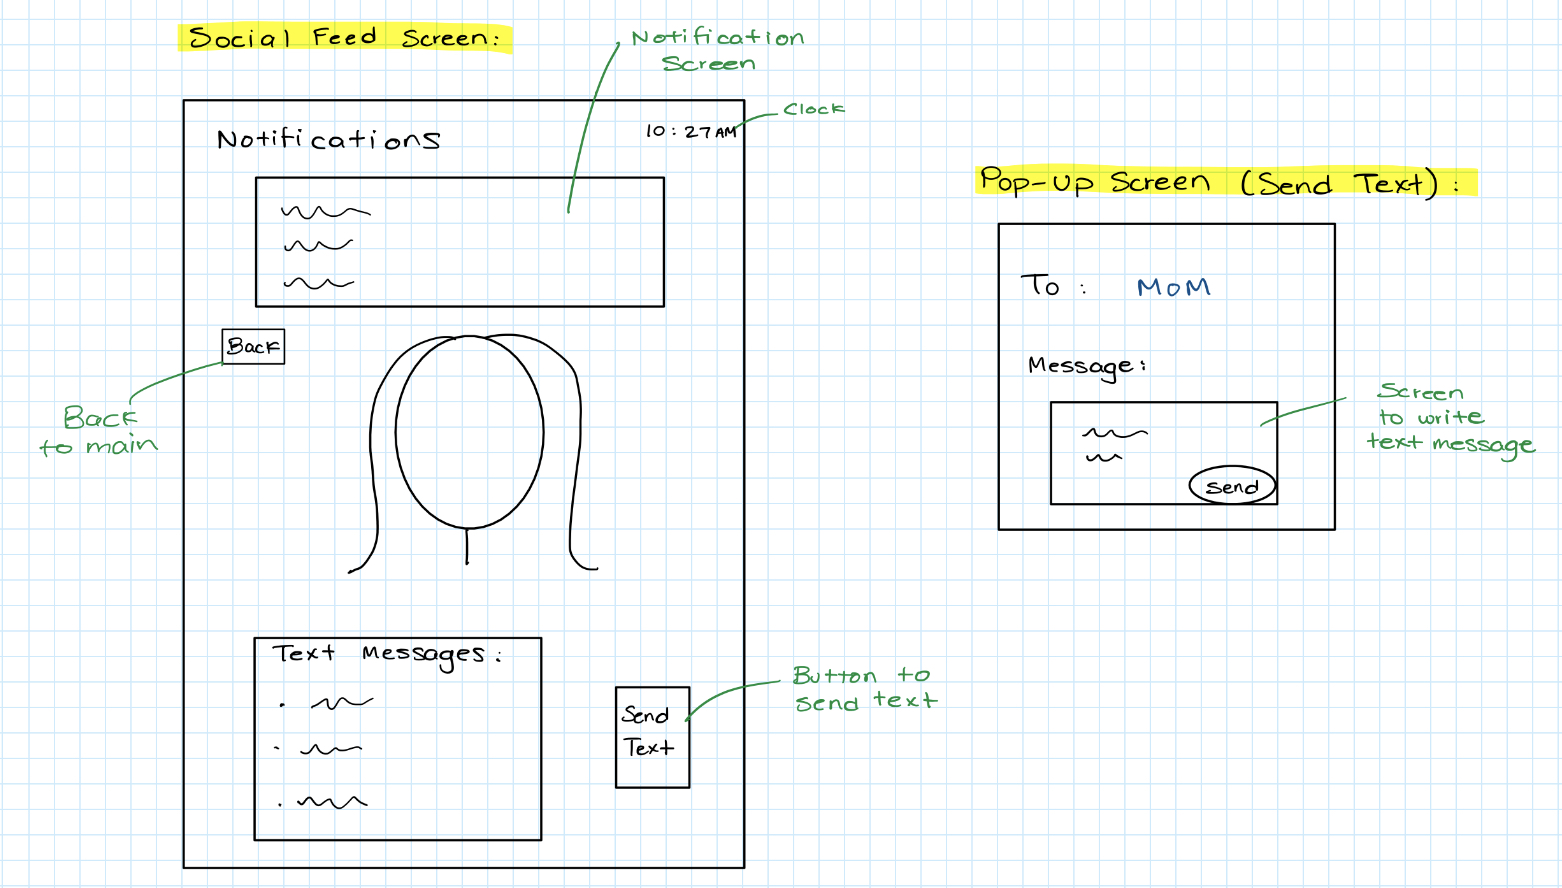 Social Feed Screen:
Notification
Screen
Clock
Notifications
10:27 AM
Back
Back
to main
Text Messages:
Send
Text
Button to
send text
Pop-Up Screen (Send Text):
To: MOM
Message:
Send
Screen
to write
text message